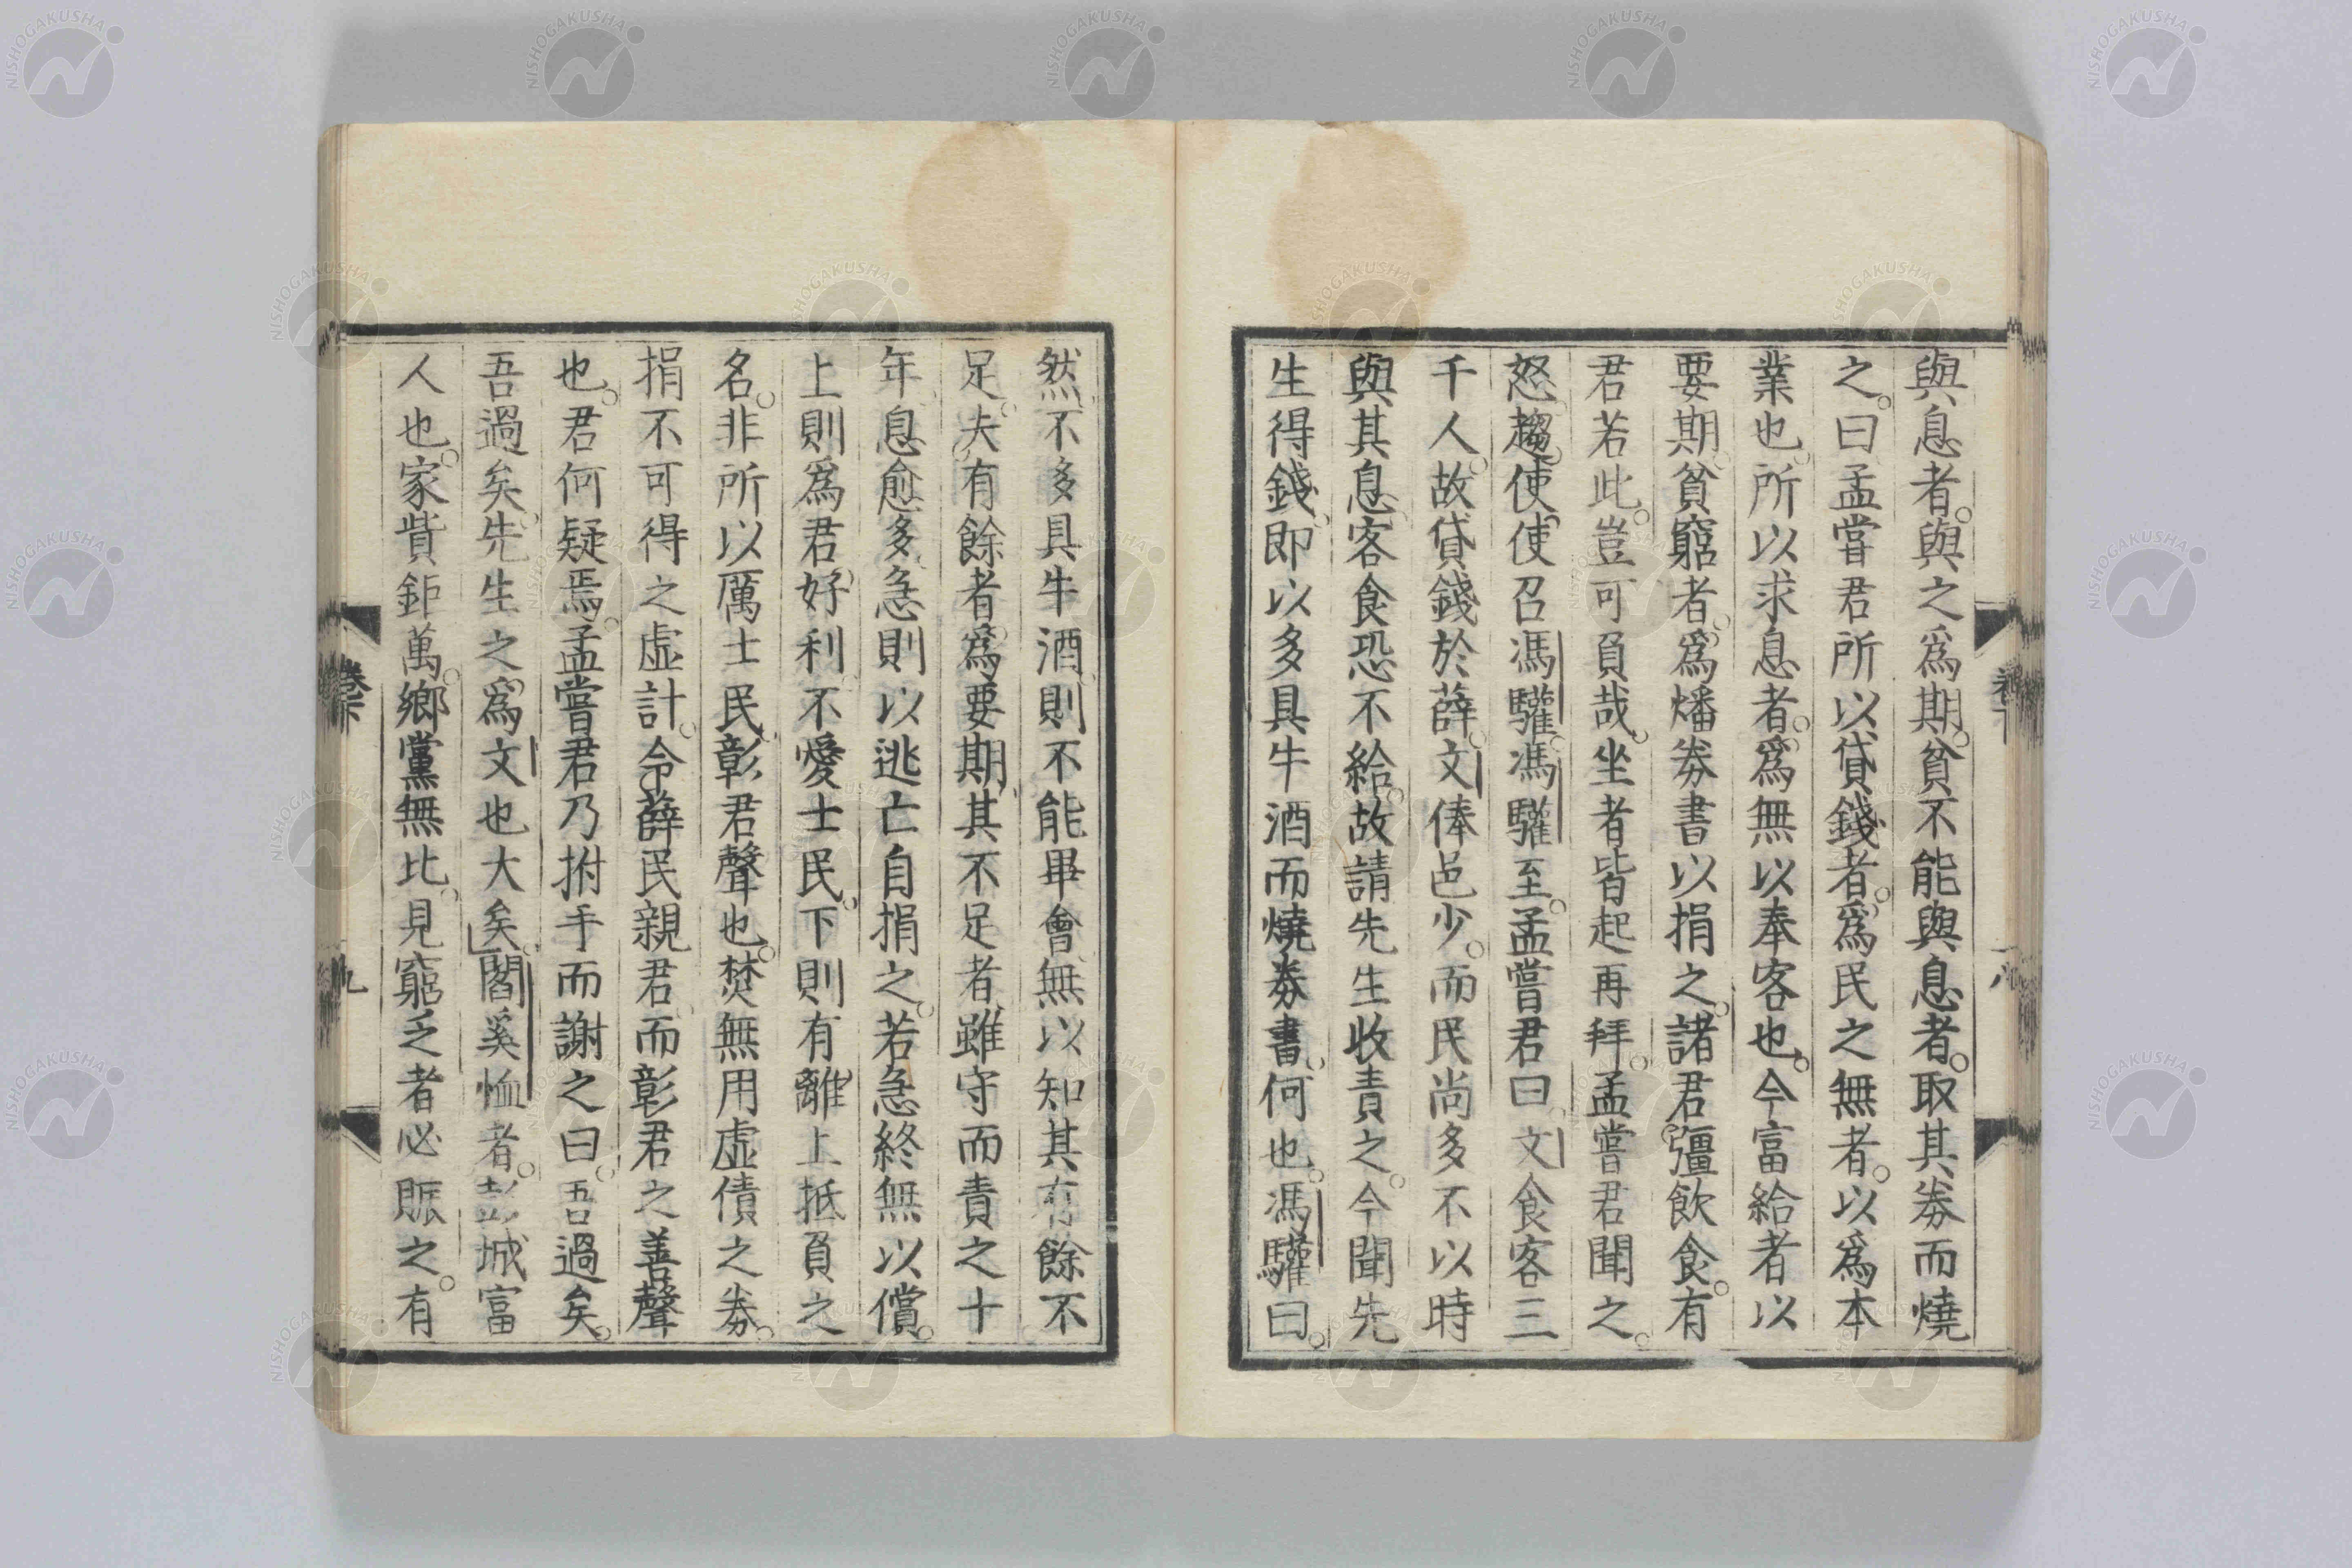 與息者。與之爲期。貧不能與息者。取其劵而燒
之。曰孟嘗君所以貸錢者。爲民之無者。以爲本
業也。所以求息者。爲無以奉客也。今富給者以
要期。貧窮者。爲燔劵書以捐之。諸君彊飲食。有
君若此。豈可負哉。坐者皆起再拜。孟嘗君聞之。
怒趨使使召馮驩。馮驩至。孟嘗君曰。文食客三
千人。故貸錢於薛。文俸邑少。而民尚多不以時
與其息。客食恐不給。故請先生收責之。今聞先
生得錢。即以多具牛酒而燒劵書。何也。馮驩曰。
然不多具牛酒則不能畢會無以知其有餘不
足。夫有餘者。爲要期。其不足者。雖守而責之十
年。息愈多。急則以逃亡自捐之。若急終無以償。
上則爲君好利不愛士民。下則有離上抵負之
名。非所以厲士民彰君聲也。焚無用虛債之劵。
捐不可得之虛計。令薛民親君而彰君之善聲
也。君何疑焉。孟嘗君乃拊手而謝之曰。吾過矣。
吾過矣。先生之爲文也大矣。」閻奚恤者。彭城富
人也。家貲鉅萬。鄉黨無比。見窮乏者必賑之。有
卷下
九
NISHOGAKUSHA